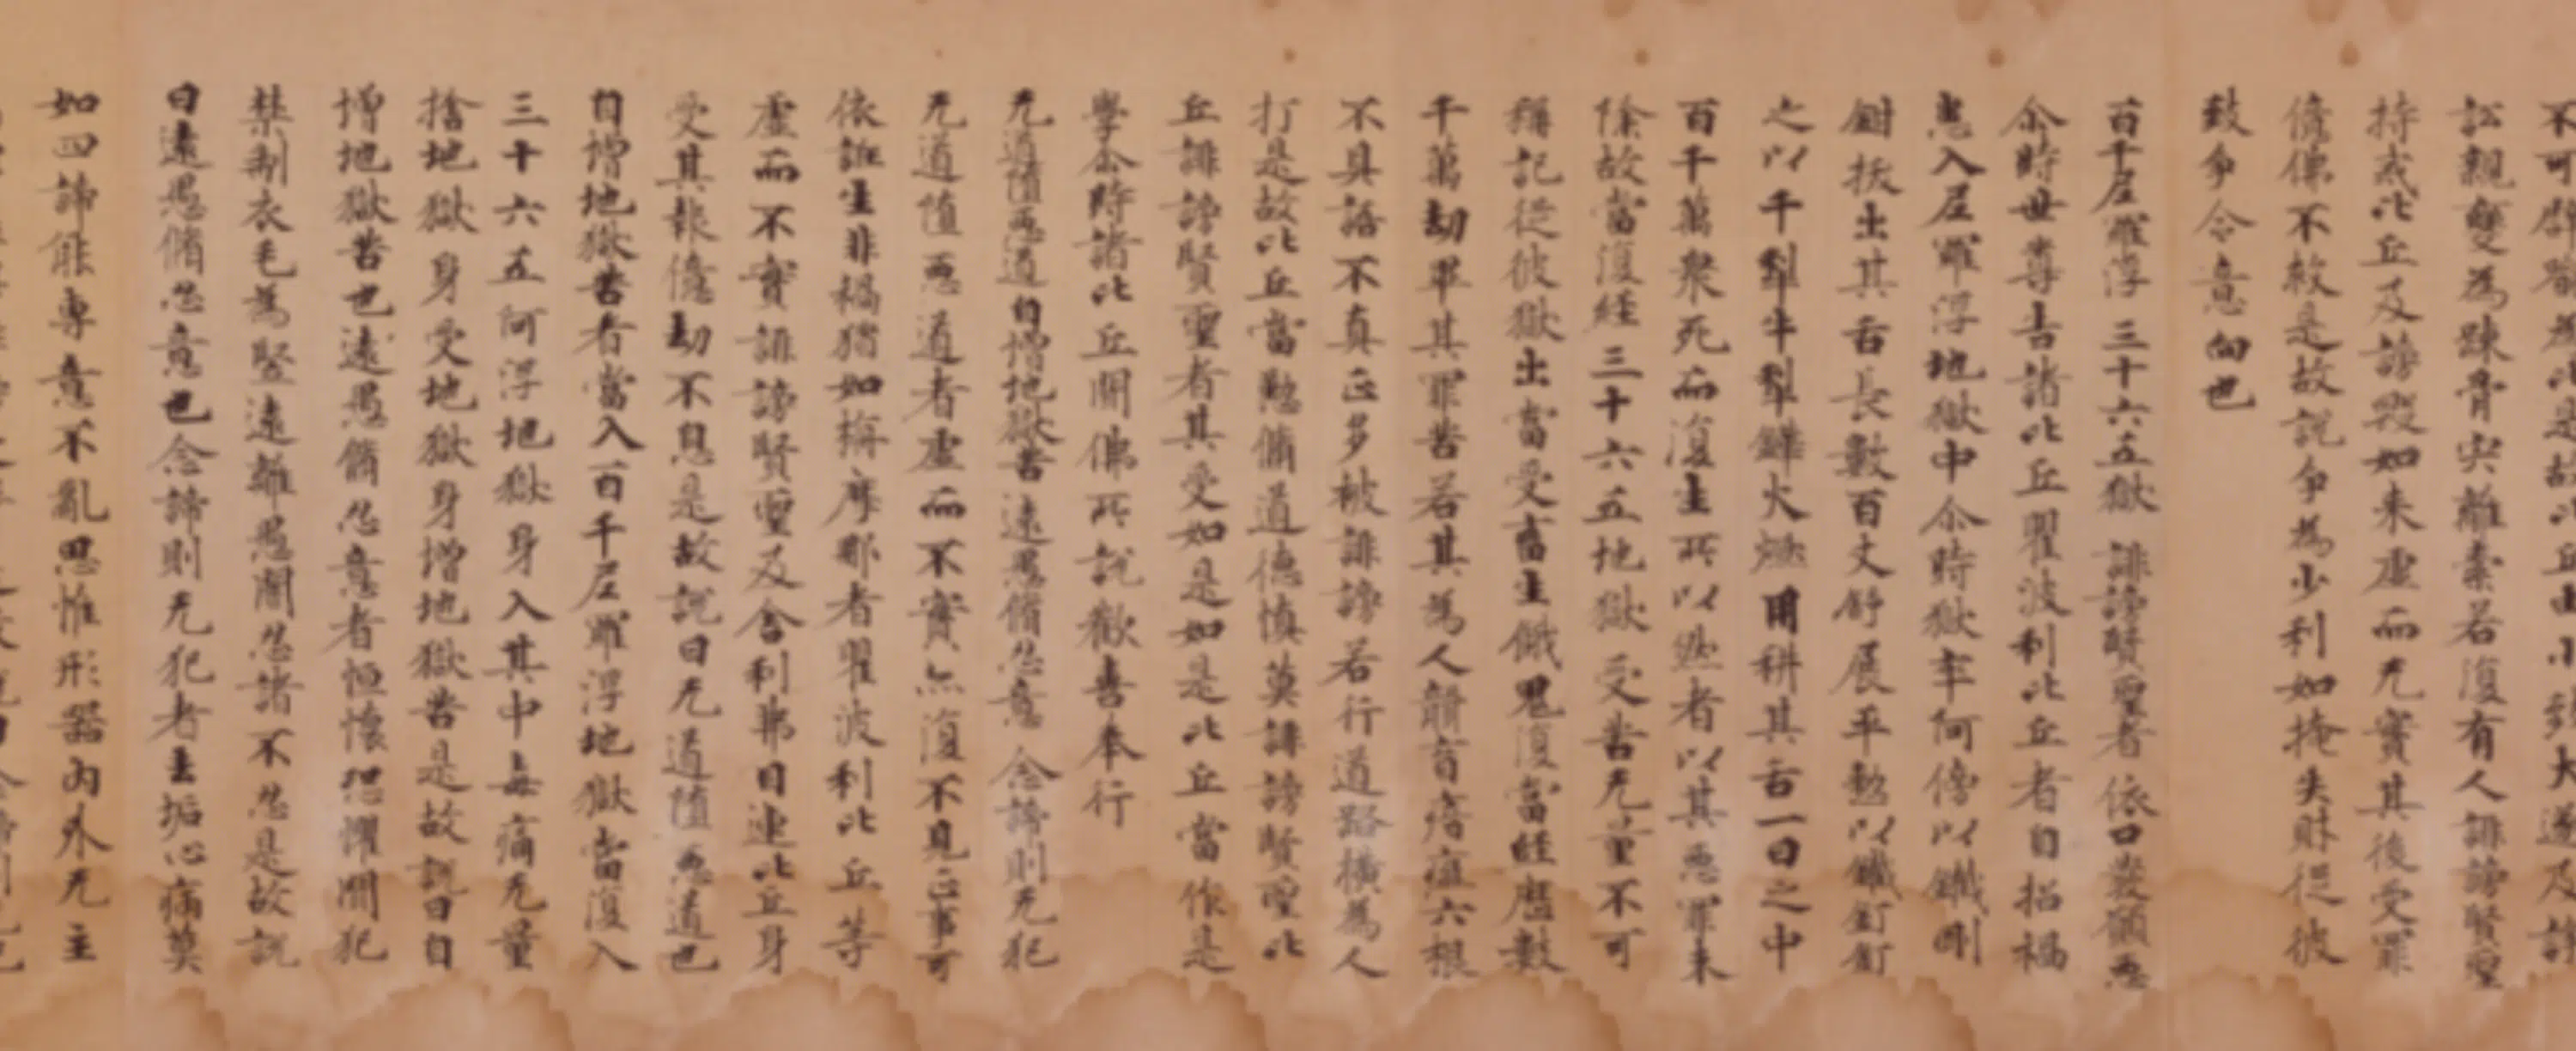 訟親變為踈骨宍離索若復有人誹謗賢聖
持戒比丘及謗毀如来虛而无實其後受罪
脩備不較是故說爭為少利如掩失財從彼
致爭令意向也
百千尼羅浮三十六五獄誹謗賢聖者依口發願惡
尒時世尊告諸比丘瞿波利比丘者自招禍
患入尼羅浮地獄中尒時獄卒阿傍以鐵
鉗拔出其舌長數百丈舒展平慜以鐵釘釘
之以千犁牛犁鏵火燃用耕其舌一日之中
百千萬衆死而復生所以然者以其惡罪未
除故當復經三十六五地獄受苦无量不可
稱記從彼獄出當受畜生餓鬼復當經歷數
千萬劫畢其罪苦若其為人聾盲瘖瘂六根
不具語不真正多被誹謗若行道路橫為人
打是故比丘當懃脩道德慎莫誹謗賢聖比
丘誹謗賢聖者其受如是如是比丘當作是
學尒時諸比丘聞佛所說歡喜奉行
无道墮惡道自增地獄苦遠愚脩忍意念諦則无犯
无道墮惡道者虛而不實無復不見正事可
依誰生非禍猶如旃摩那者瞿波利比丘等
虛而不實誹謗賢聖及舍利弗目連比丘身
受其報億劫不息是故說曰无道墮惡道也
自增地獄苦者當入百千尼羅浮地獄當復入
三十六五阿浮地獄身入其中毒痛无量
捨地獄身受地獄身增地獄苦是故說曰自
增地獄苦也遠愚脩忍意者恒懷恐懼聞犯
禁制衣毛為竪遠離愚闇忍諸不忍是故說
曰遠愚脩忍意也念諦則无犯者去垢心痛莫
如四諦能專意不亂思惟形器內外无主